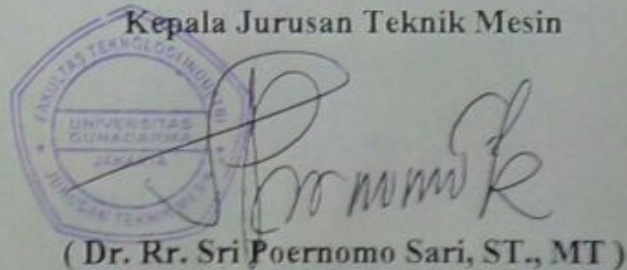 Kepala Jurusan Teknik Mesin
FAKULTAS TEKNOLOGI INDUSTRI
UNIVERSITAS
GUNADARMA
JAKARTA
JURUSAN TEKNIK MESIN
( Dr. Rr. Sri Poernomo Sari, ST., MT )